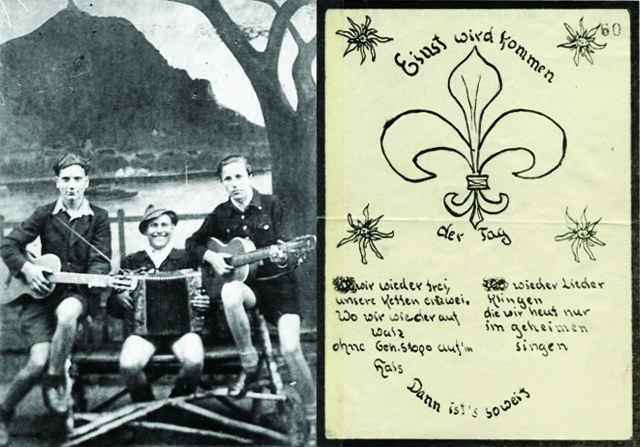 60
Einst wird kommen
der Tag
wir wieder frei,
unsere Ketten entzwei.
Wo wir wieder auf
Walz
ohne Geh.stapo auf'm
Hals
wieder Lieder
klingen
die wir heut nur
im geheimen
singen
Dann ist's soweit